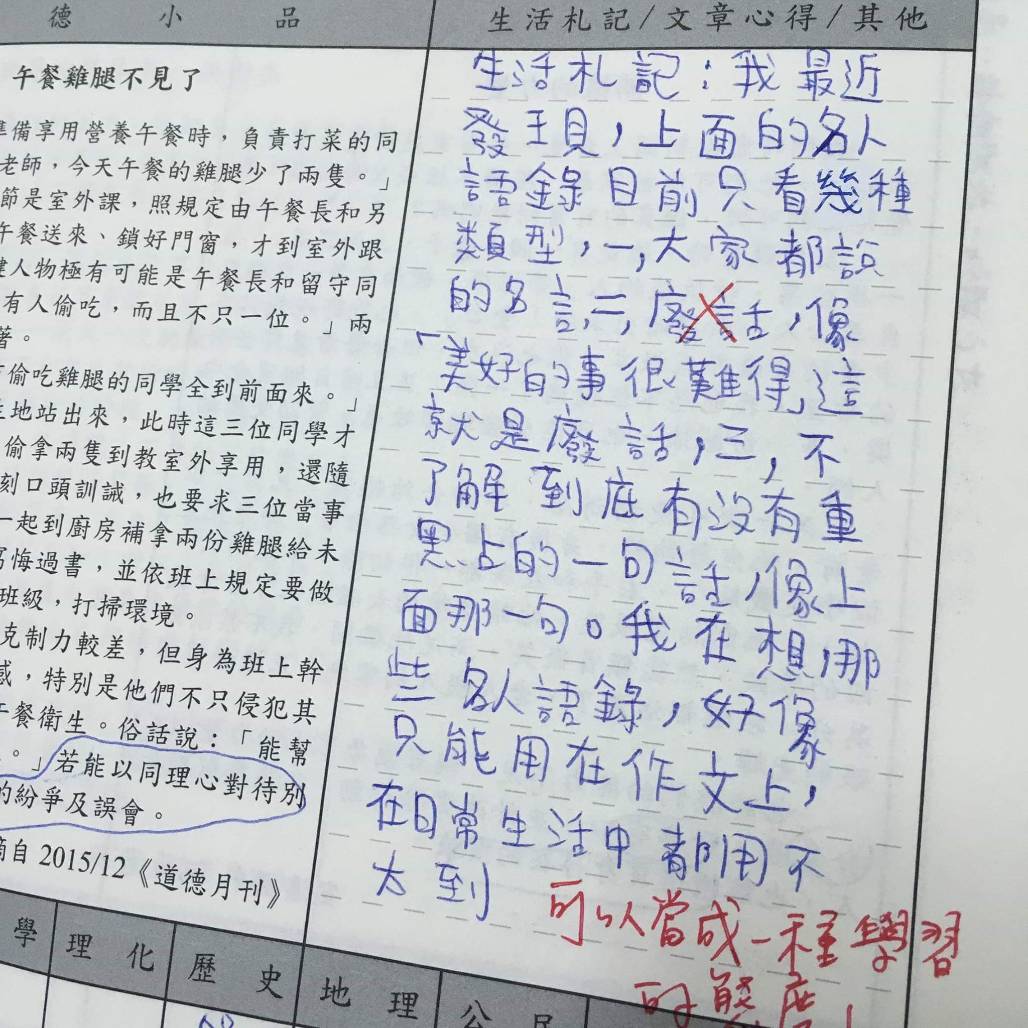 德小品
午餐雞腿不見了
準備享用營養午餐時，負責打菜的同
老師，今天午餐的雞腿少了兩隻。」
節是室外課，照規定由午餐長和另
午餐送來、鎖好門窗，才到室外跟
鍵人物極有可能是午餐長和留守同
有人偷吃，而且不只一位。」兩
著。
偷吃雞腿的同學全到前面來。」
地站出來，此時這三位同學才
偷拿兩隻到教室外享用，還隨
刻口頭訓誡，也要求三位當事
一起到廚房補拿兩份雞腿給未
寫悔過書，並依班上規定要做
班級，打掃環境。
克制力較差，但身為班上幹
感，特別是他們不只侵犯其
午餐衛生。俗話說：「能幫
。」若能以同理心對待別
的紛爭及誤會。
摘自 2015/12《道德月刊》
生活札記/文章心得/其他
生活札記：我最近
發現，上面的名人
語錄目前只看幾種
類型，一，大家都說
的名言，二，廢話，像
「美好的事很難得，這
就是廢話，三，不
了解到底有沒有重
點的一句話，像上
面那一句。我在想，那
些名人語錄，好像
只能用在作文上，
在日常生活中都用不
太到
可以當成一種學習
的態度！
學 理化 歷史 地理 公民